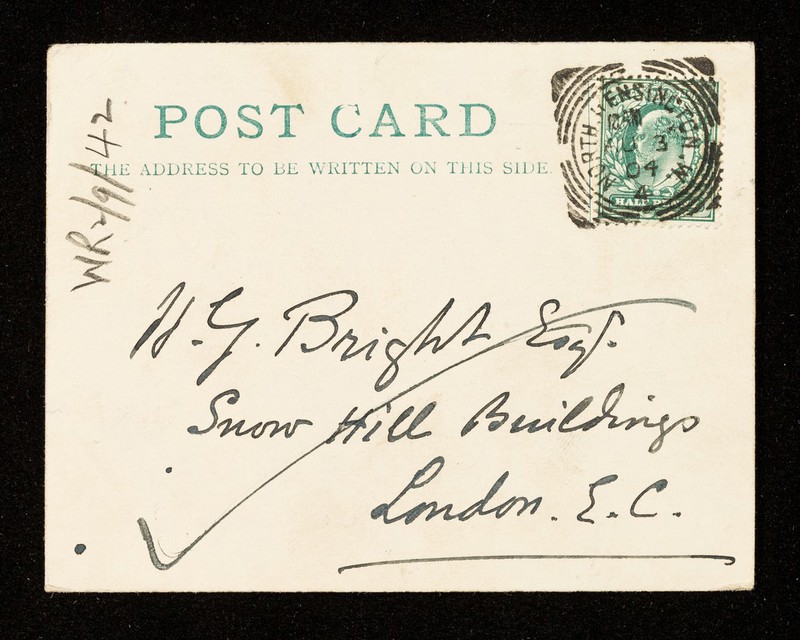 POST CARD
THE ADDRESS TO BE WRITTEN ON THIS SIDE.
NORTH KENSINGTON. W.
3
04
4
HALF
WR2/9/42
H. G. Bright Esqr.
Snow Hill Buildings
London. E.C.